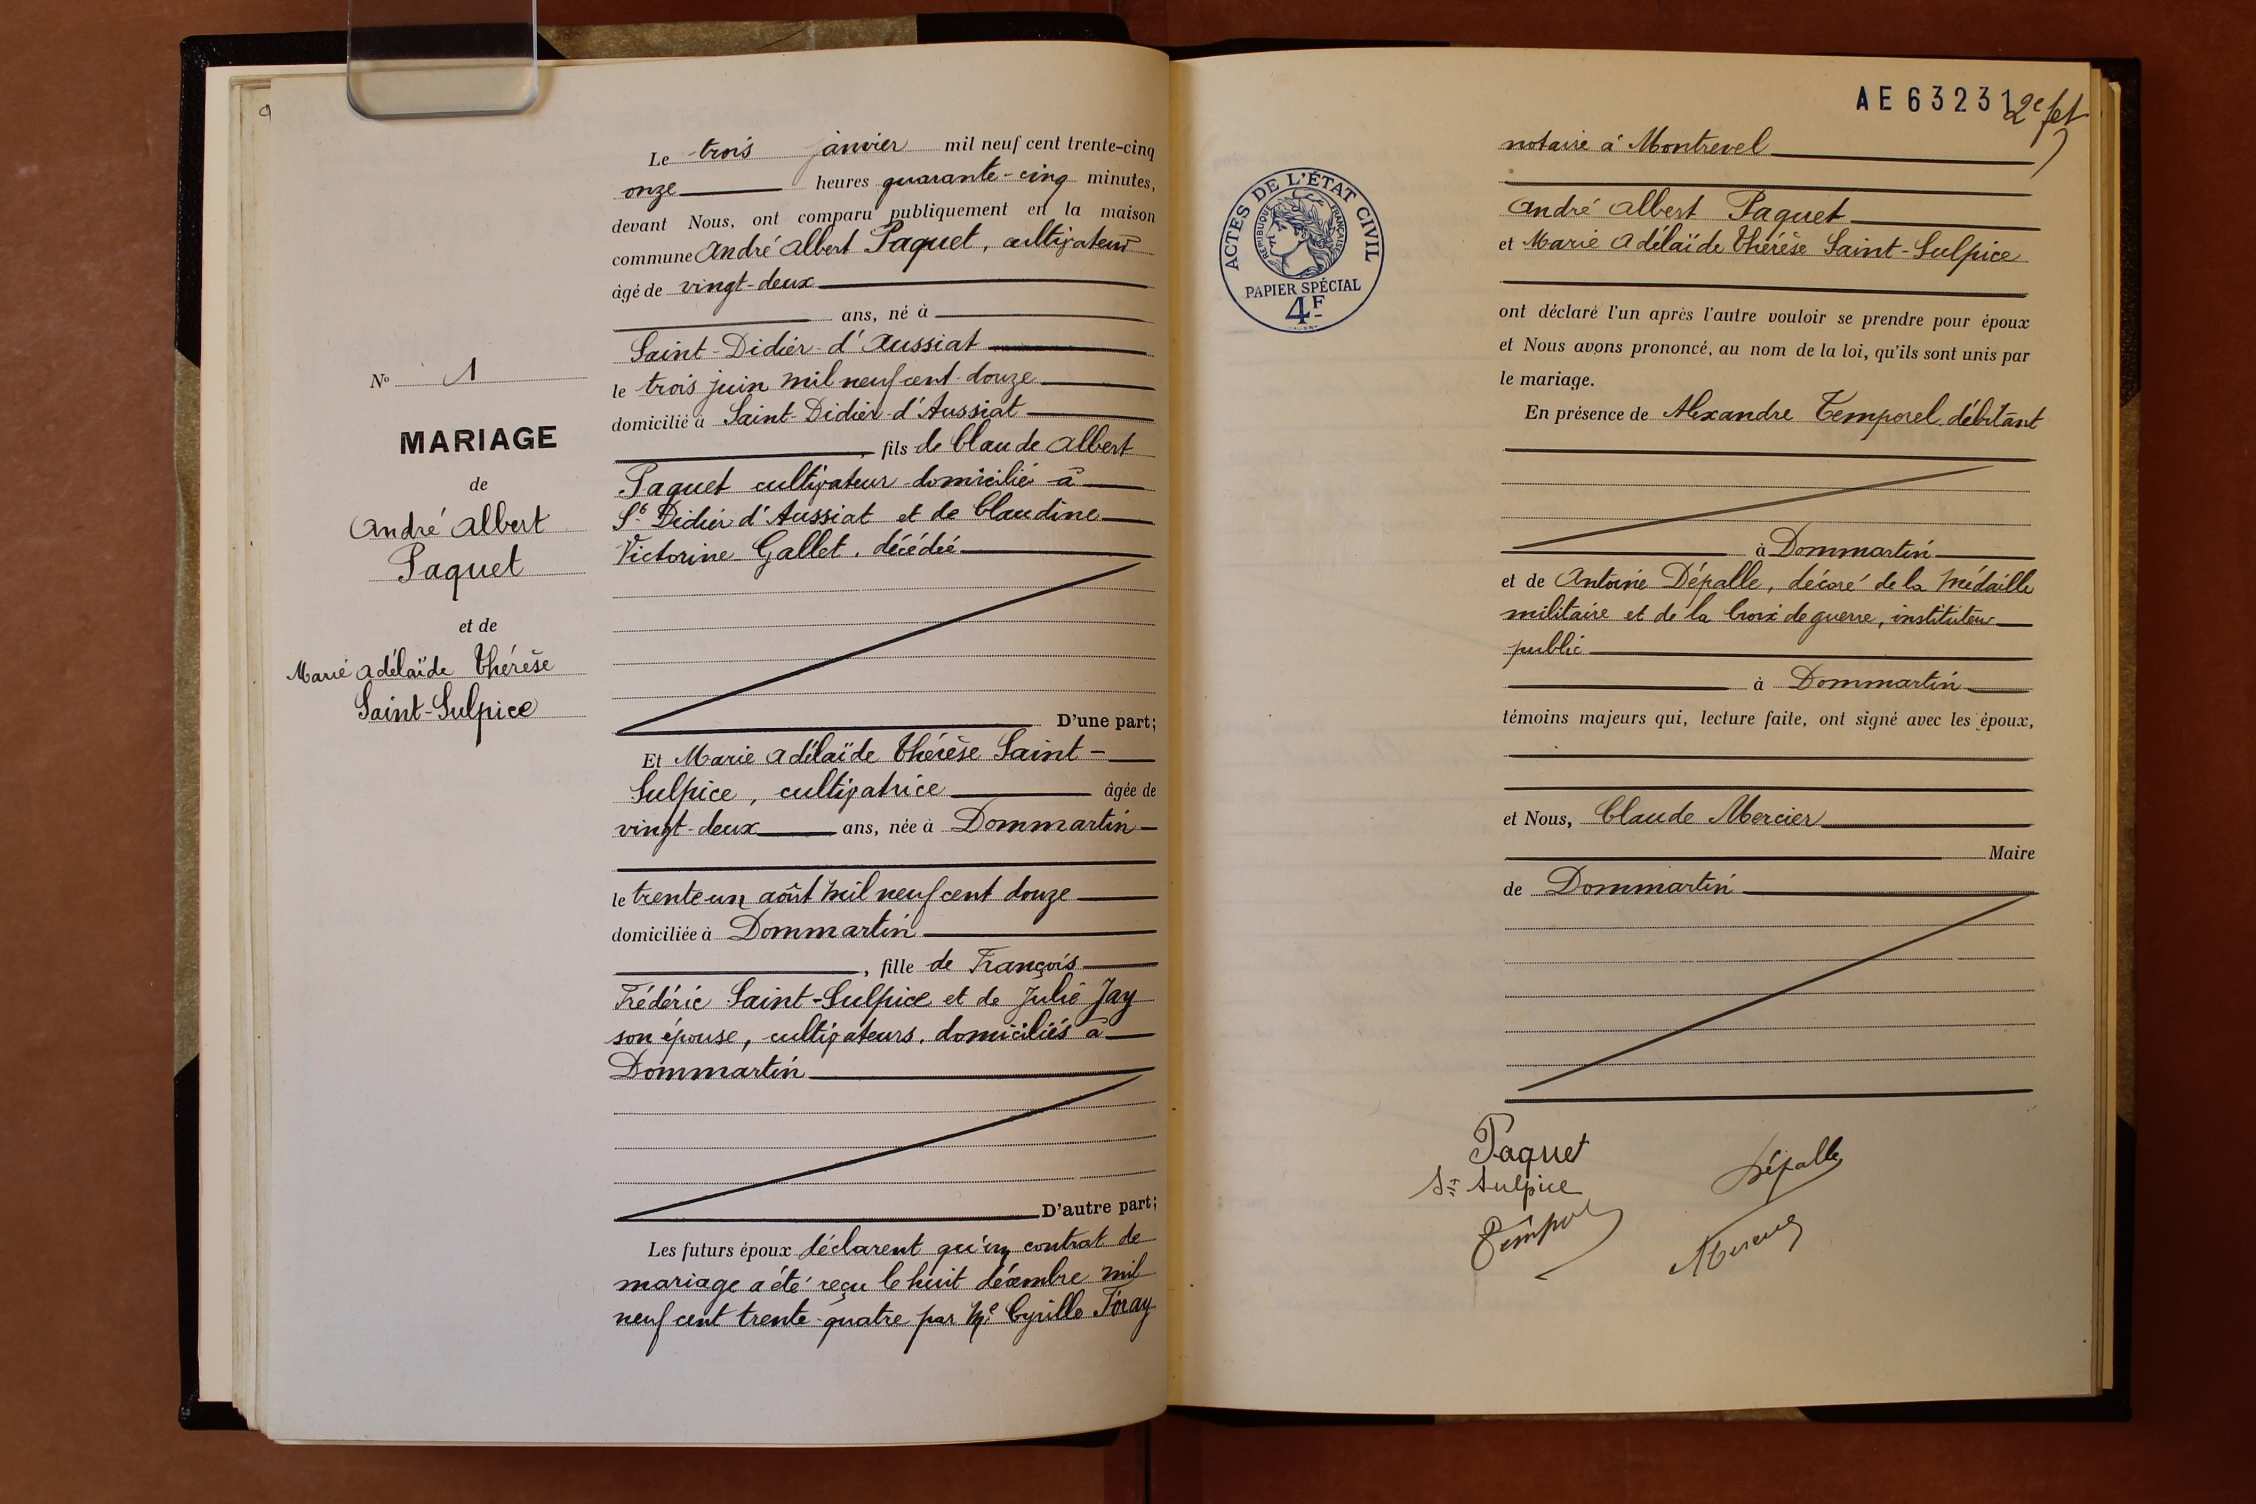 Le trois janvier mil neuf cent trente-cinq
onze heures quarante-cinq minutes,
devant Nous, ont comparu publiquement en la maison
commune André Albert Paquet, cultivateur
âgé de vingt-deux
ans, né à
Saint-Didier-d'Aussiat
le trois juin mil neuf cent douze
domicilié à Saint-Didier-d'Aussiat
, fils de Claude Albert
Paquet cultivateur domicilié à
St Didier d'Aussiat et de Claudine
Victorine Gallet, décédée
D'une part;
Et Marie Adélaïde Thérèse Saint-
Sulpice, cultivatrice âgée de
vingt-deux ans, née à Dommartin
le trente-un août mil neuf cent douze
domiciliée à Dommartin
, fille de François
Frédéric Saint-Sulpice et de Julie Jay
son épouse, cultivateurs, domiciliés à
Dommartin
D'autre part;
Les futurs époux déclarent qu'un contrat de
mariage a été reçu le huit décembre mil
neuf cent trente-quatre par Me Cyrille
No 1
MARIAGE
de
André Albert
Paquet
et de
Marie Adélaïde Thérèse
Saint-Sulpice
AE 63231
2e fet
ACTES DE L'ÉTAT CIVIL
RÉPUBLIQUE FRANÇAISE
PAPIER SPÉCIAL
4F
notaire à Montrevel
André Albert Paquet
et Marie Adélaïde Thérèse Saint-Sulpice
ont déclaré l'un après l'autre vouloir se prendre pour époux
et Nous avons prononcé, au nom de la loi, qu'ils sont unis par
le mariage.
En présence de Alexandre Temporel débitant
à Dommartin
et de Antoine Dépalle, décoré de la Médaille
militaire et de la Croix de guerre, instituteur
public
à Dommartin
témoins majeurs qui, lecture faite, ont signé avec les époux,
et Nous, Claude Mercier
Maire
de Dommartin
Paquet
St Sulpice
Dépalle
Temporel
Mercier